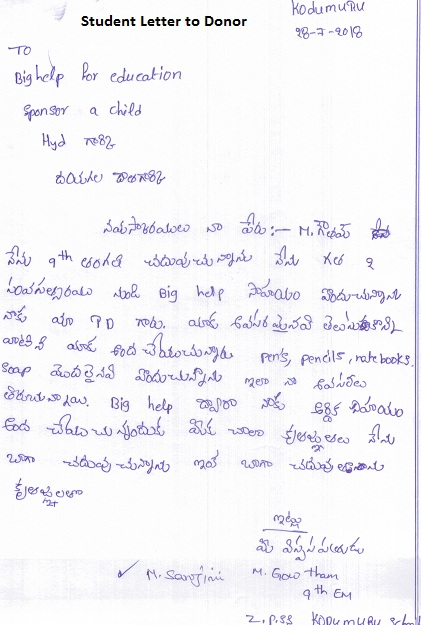 Student Letter to Donor
Kodumuru
28-7-2018
TO
Big help for education
Sponsor a child
Hyd గారికి
దయగల దాతగారికి
నమస్కారములు నా పేరు:— M. గౌతమ్
నేను 9th తరగతి చదువుచున్నాను నేను గత 2
సంవత్సరము నుండి Big help సహాయం పొందుచున్నాను
నాకు మా PD గారు. మాకు అవసరమైనవి తెలుసుకొని
వాటిని మాకు అంద చేయుచున్నారు pens, pencils, note books.
Soap మొదలైనవి పొందుచున్నాను ఇలా నా అవసరాలు
తీరుచున్నాయి. Big help ద్వారా నాకు ఆర్థిక సహాయం
అంద చేయుచున్నందుకు మీకు చాలా కృతజ్ఞతలు నేను
బాగా చదువుచున్నాను ఇంకా బాగా
కృతజ్ఞతలతో
ఇట్లు
మీ విశ్వసపాత్రుడు
✓ M. Sarojini M. Gowtham
9th EM
Z.P.SS KODUMURU